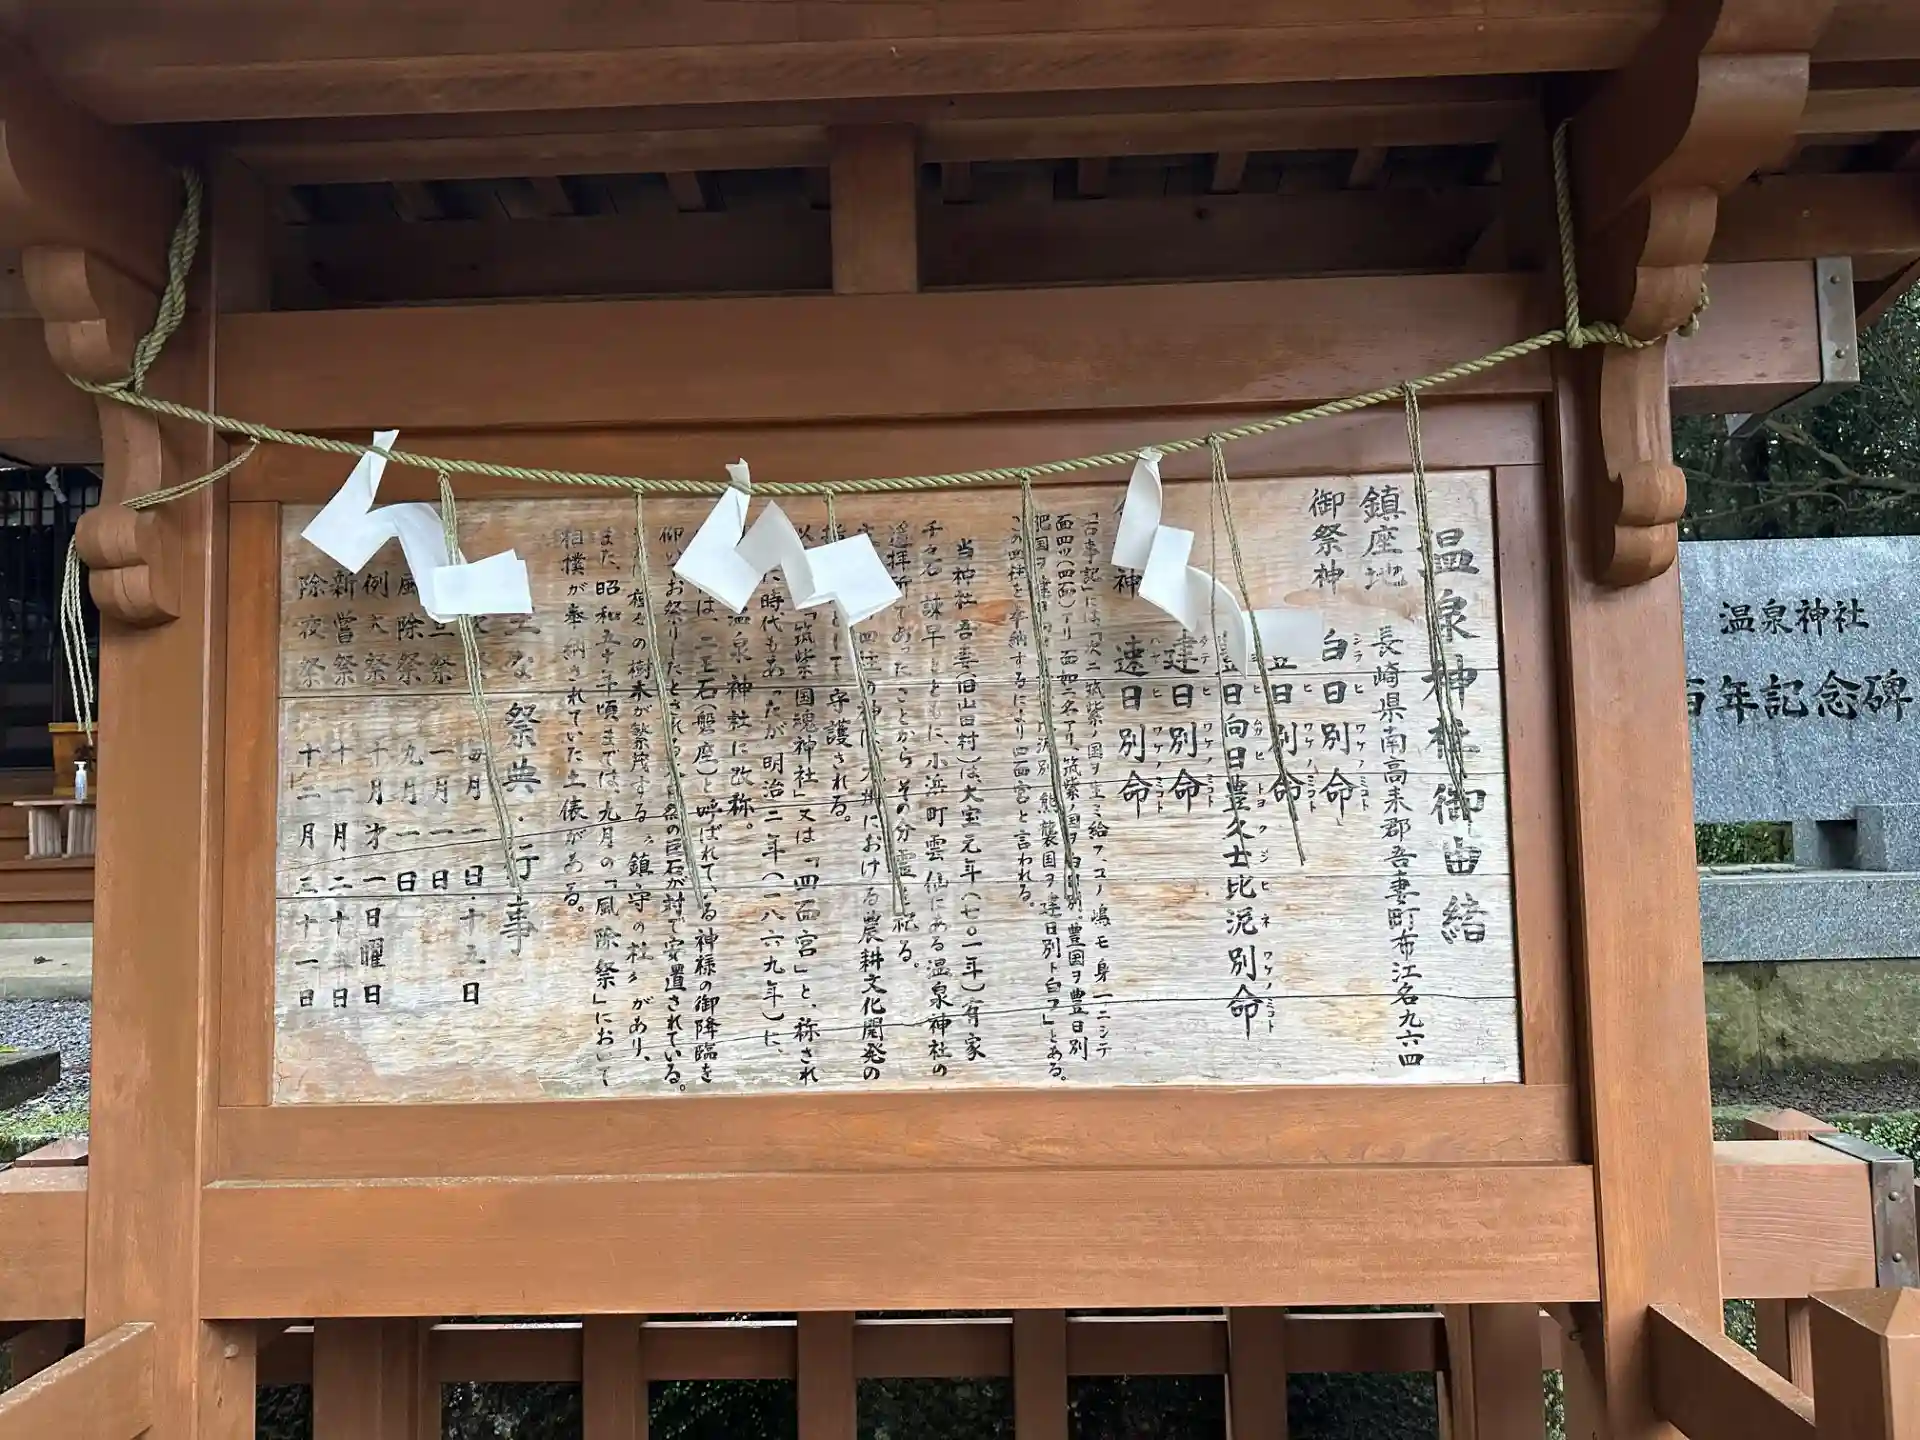 温泉神社御由緒
鎮座地 長崎県南高来郡吾妻町布江名九六四
御祭神 白日別命
シラヒワケノミコト
日別命
ヒワケノミコト
日向日豊久士比泥別命
ヒムカヒトヨクジヒネワケノミコト
建日別命
タケヒワケノミコト
神 速日別命
ハヤヒワケノミコト
「古事記」には「次ニ筑紫ノ国ヲ生ミ給フ、コノ嶋モ身一ニシテ
面四ツ(四面)アリ面如ニ名アリ、筑紫ノ国ヲ白日別、豊国ヲ豊日別
肥国ヲ建日 別、熊襲国ヲ建日別ト白フ」とある。
この四柱を奉納するにより四面宮と言われる。
当神社吾妻(旧山田村)は大宝元年(七〇一年)有家
千々石、諫早とともに、小浜町雲仙にある温泉神社の
遥拝所であったことからその分霊を祀る。
四柱の神は、 における農耕文化開発の
として守護される。
「筑紫国魂神社」又は「四面宮」と、称され
た時代もあったが明治二年(一八六九年)に、
温泉神社に改称。
は、二王石(磐座)と呼ばれている神様の御降臨を
仰いでお祭りしたとされる の巨石が対で安置されている。
の樹木が繁茂する〝鎮守の杜〟があり、
また、昭和五十年頃までは、九月の「風除祭」において
相撲が奉納されていた土俵がある。
な祭典・行事
祭 毎月一日・十五日
祭 一月一日
風除祭 九月一日
例大祭 十月才一日曜日
新嘗祭 十一月二十五日
除夜祭 十二月三十一日
温泉神社
百年記念碑